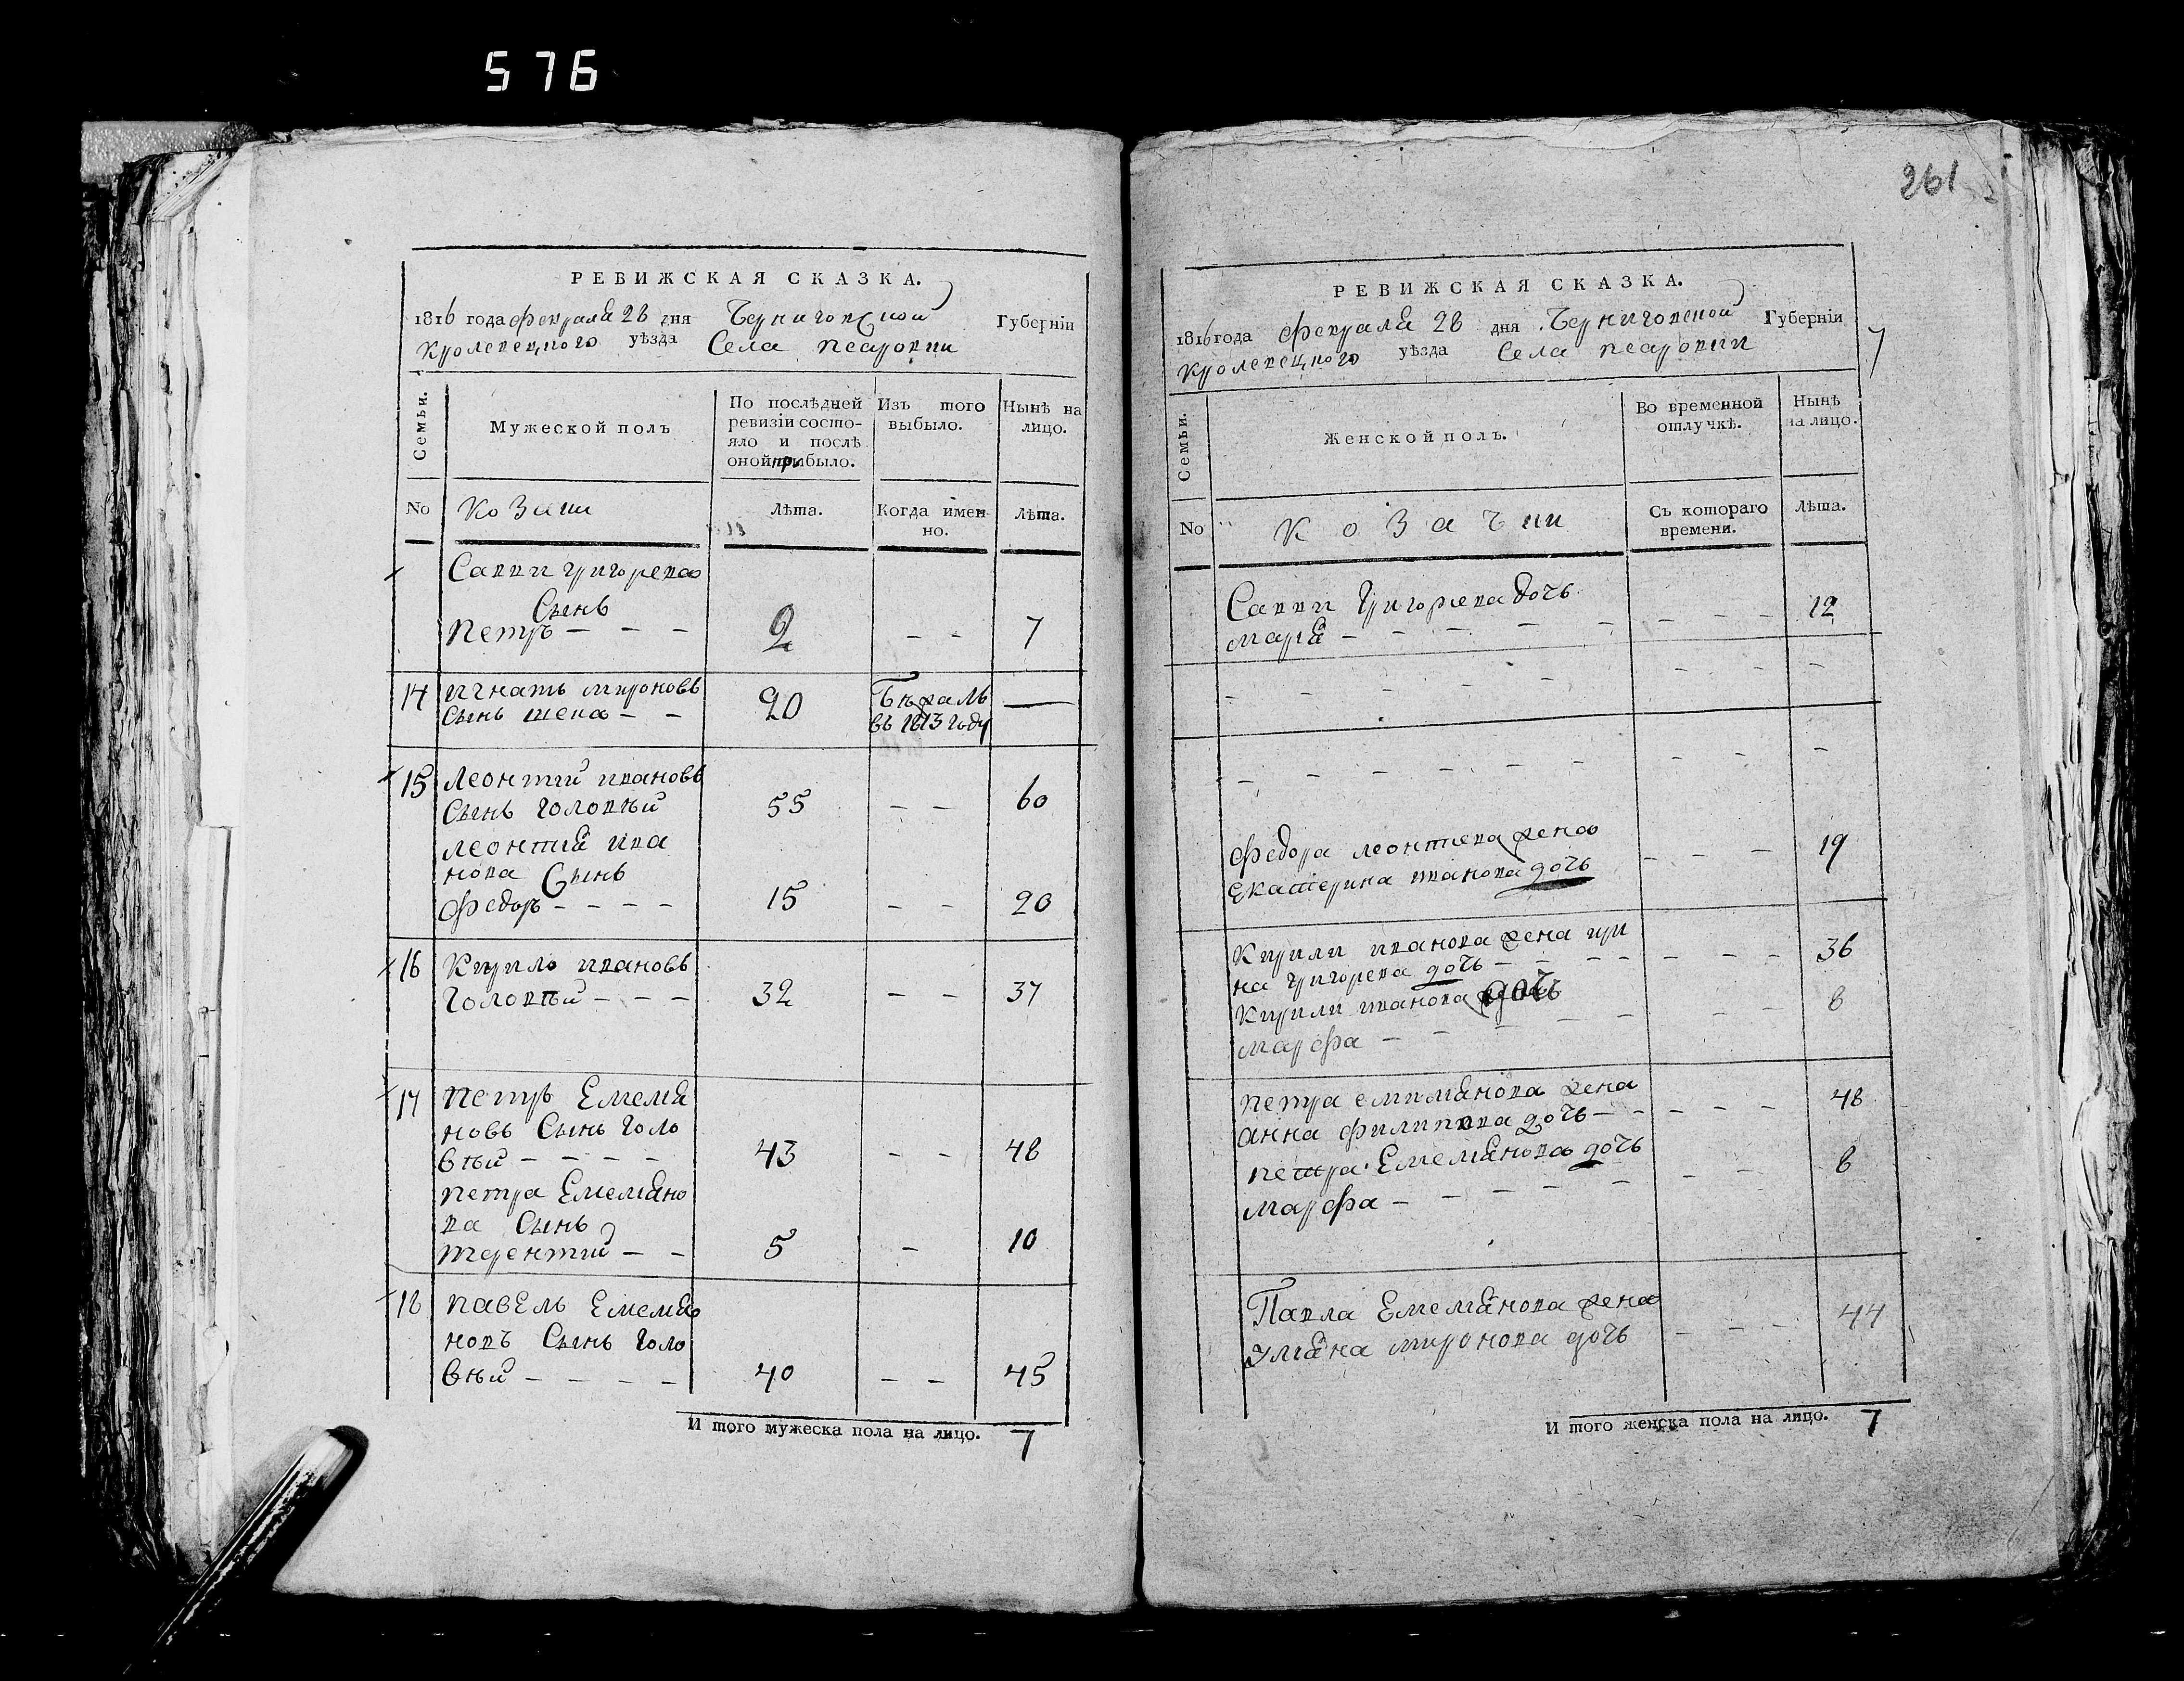 576
РЕВИЖСКАЯ СКАЗКА.
1816 года февраля 28 дня Черниговской Губерніи
Кролевецкого уѣзда Села псаровки
Семьи.
Мужеской полъ
По послѣдней ревизіи состо-
яло и послѣ
оной прибыло.
Изъ того
выбыло.
Нынѣ на
лицо.
No
Козаки
лѣта.
Когда имен-
но.
лѣта.
Савви григорева
Сынъ
петръ — — — 2 — — 7
14 игнатъ мироновъ
Сынъ — — 20 бѣжалъ
въ 1813 году —
15 леонтий ивановъ
Сынъ головнѣй 55 — — 60
леонтия ива
нова Сынъ
федоръ — — — — 15 — — 20
16 Кирило ивановъ
головнѣй — — — 32 — — 37
17 петръ Емелья
новъ Сынъ голо
внѣй — — — — 43 — — 48
петра Емеляно
ва Сынъ
терентий — — 5 — 10
18 павелъ Емелья
новъ Сынъ голо
внѣй — — — — 40 — — 45
И того мужеска пола на лицо. 7
261
РЕВИЖСКАЯ СКАЗКА.
1816 года февраля 28 дня Черниговской Губерніи
Кролевецкого уѣзда Села псаровки
7
Семьи.
Женской полъ.
Во временной
отлучкѣ.
Нынѣ
на лицо.
No
Козачки
Съ котораго
времени.
лѣта.
Савви григорева дочь
мария — — — — — — — — 12
федора леонтева жена
екатерина иванова дочь — — — 19
Кирили иванова жена ири
на григорева дочь — — — — — — — 36
Кирили иванова дочь
марфа — — — — — — — 8
петра емилянова жена
анна филипова дочь — — — — — 48
петра Емелянова дочь
марфа — — — — — — — 8
Павла Емелянова жена
улияна миронова дочь — — — 44
И того женска пола на лицо. 7